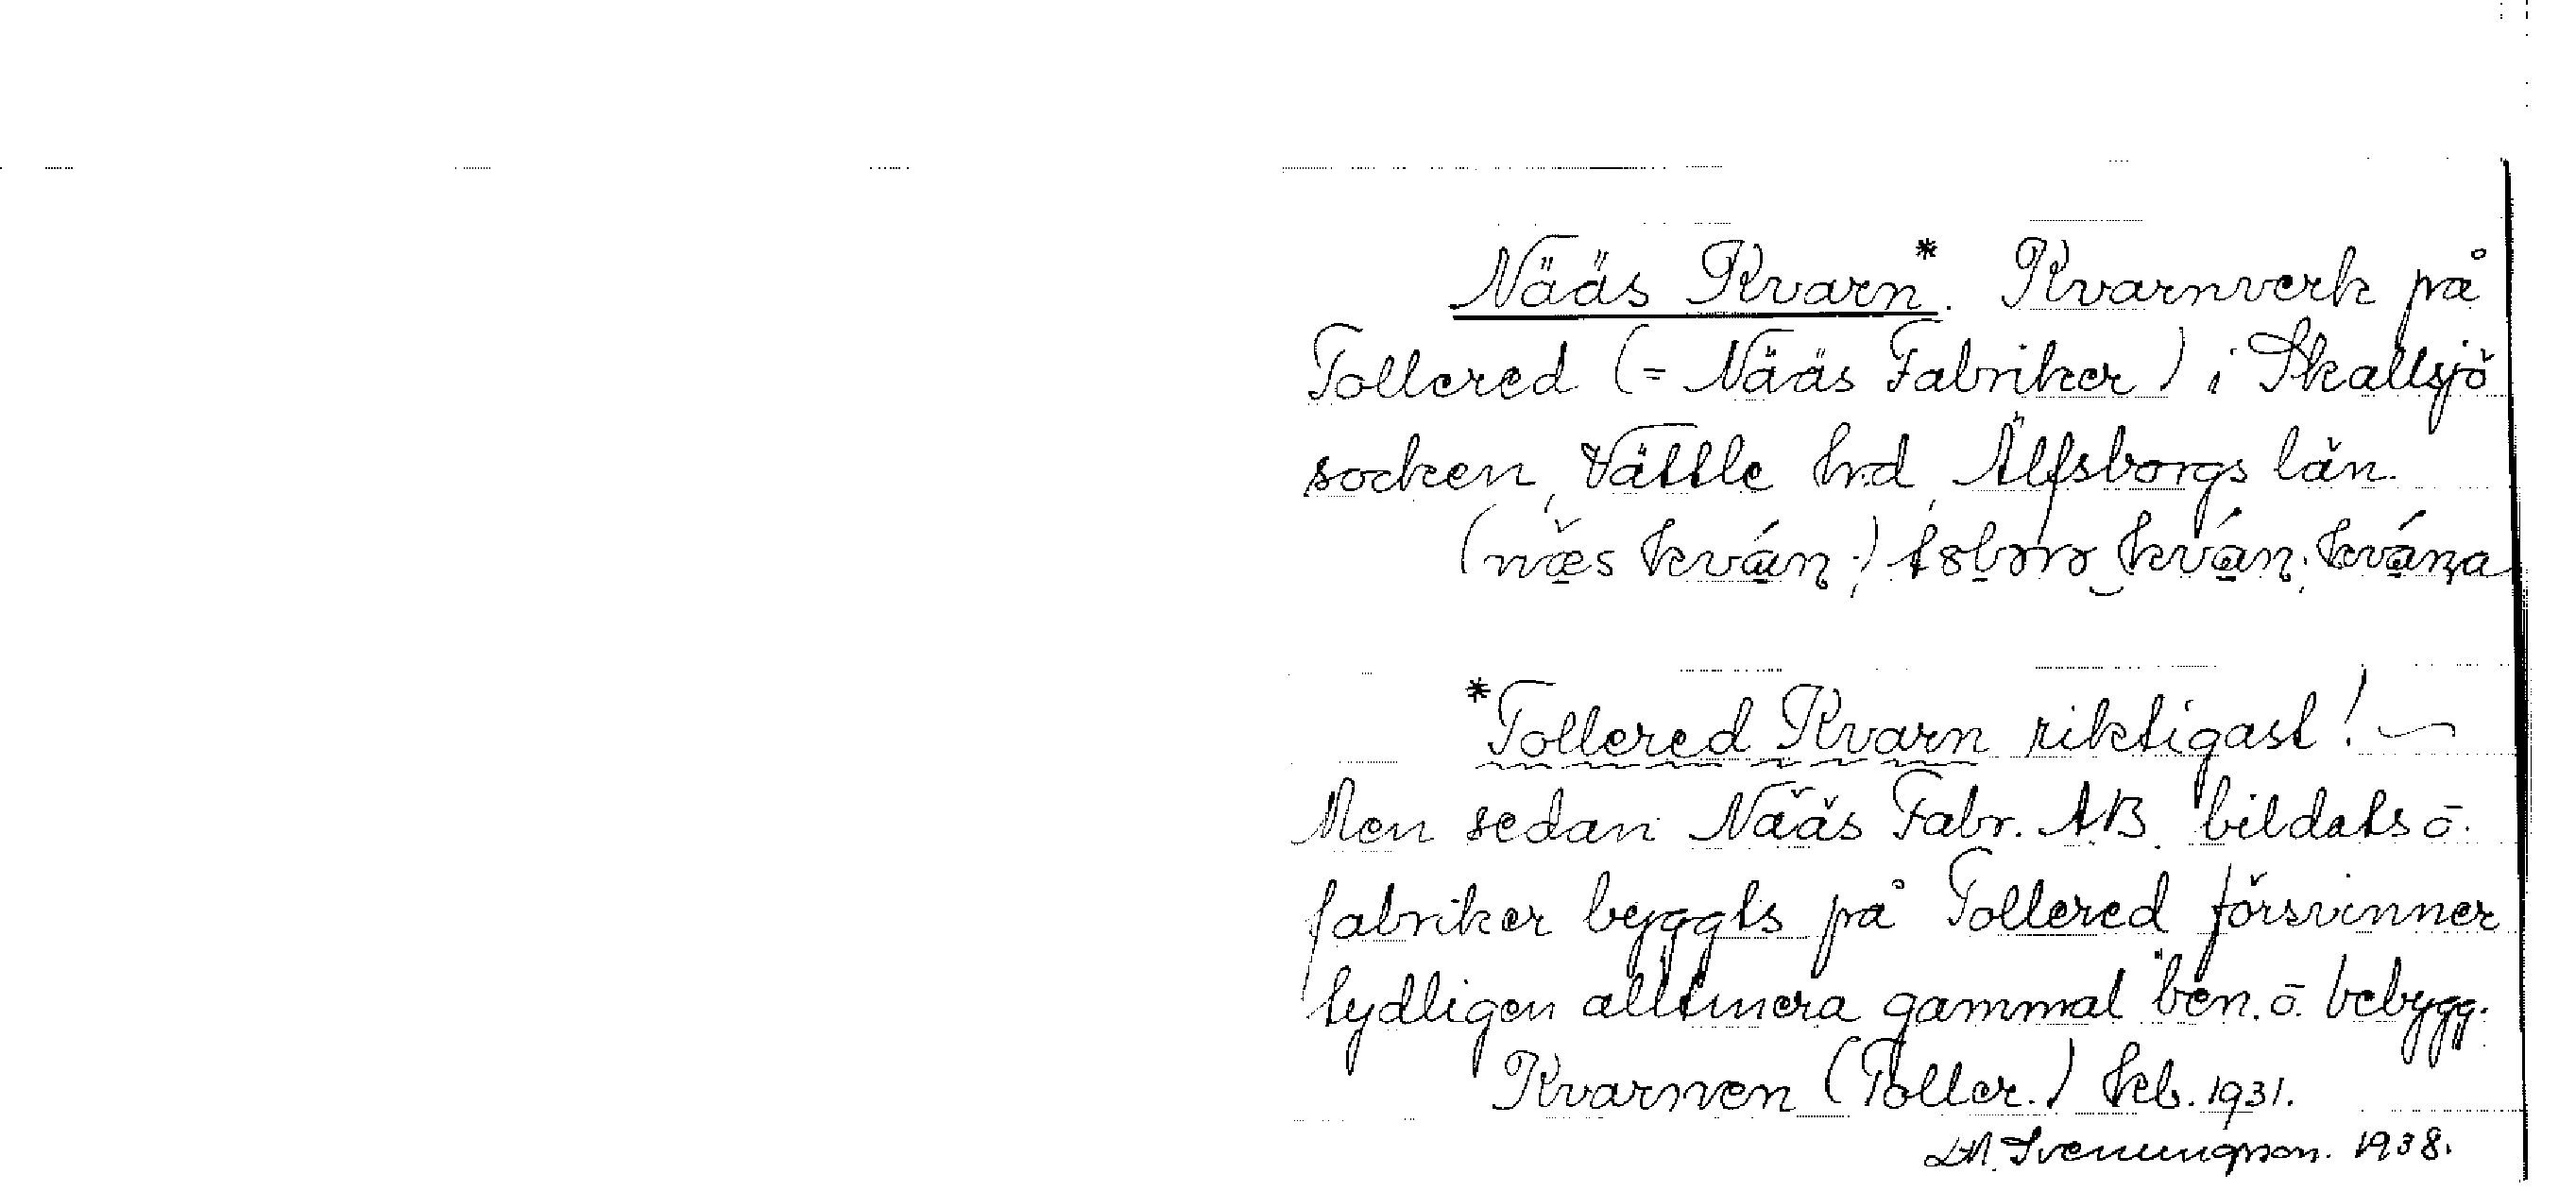 Nääs Kvarn*. Kvarnverk på
Tollered (= Nääs Fabriker) i Skallsjö
socken, Vättle hrd, Älfsborgs län.
*Tollered Kvarn riktigast! ~
Men sedan Nääs Fabr. AB. bildats o.
fabriker byggts på Tollered försvinner
tydligen alltmera gammal ben. o. bebygg.
Kvarnen (Toller.) kb. 1931.
Svenungsson. 1938.